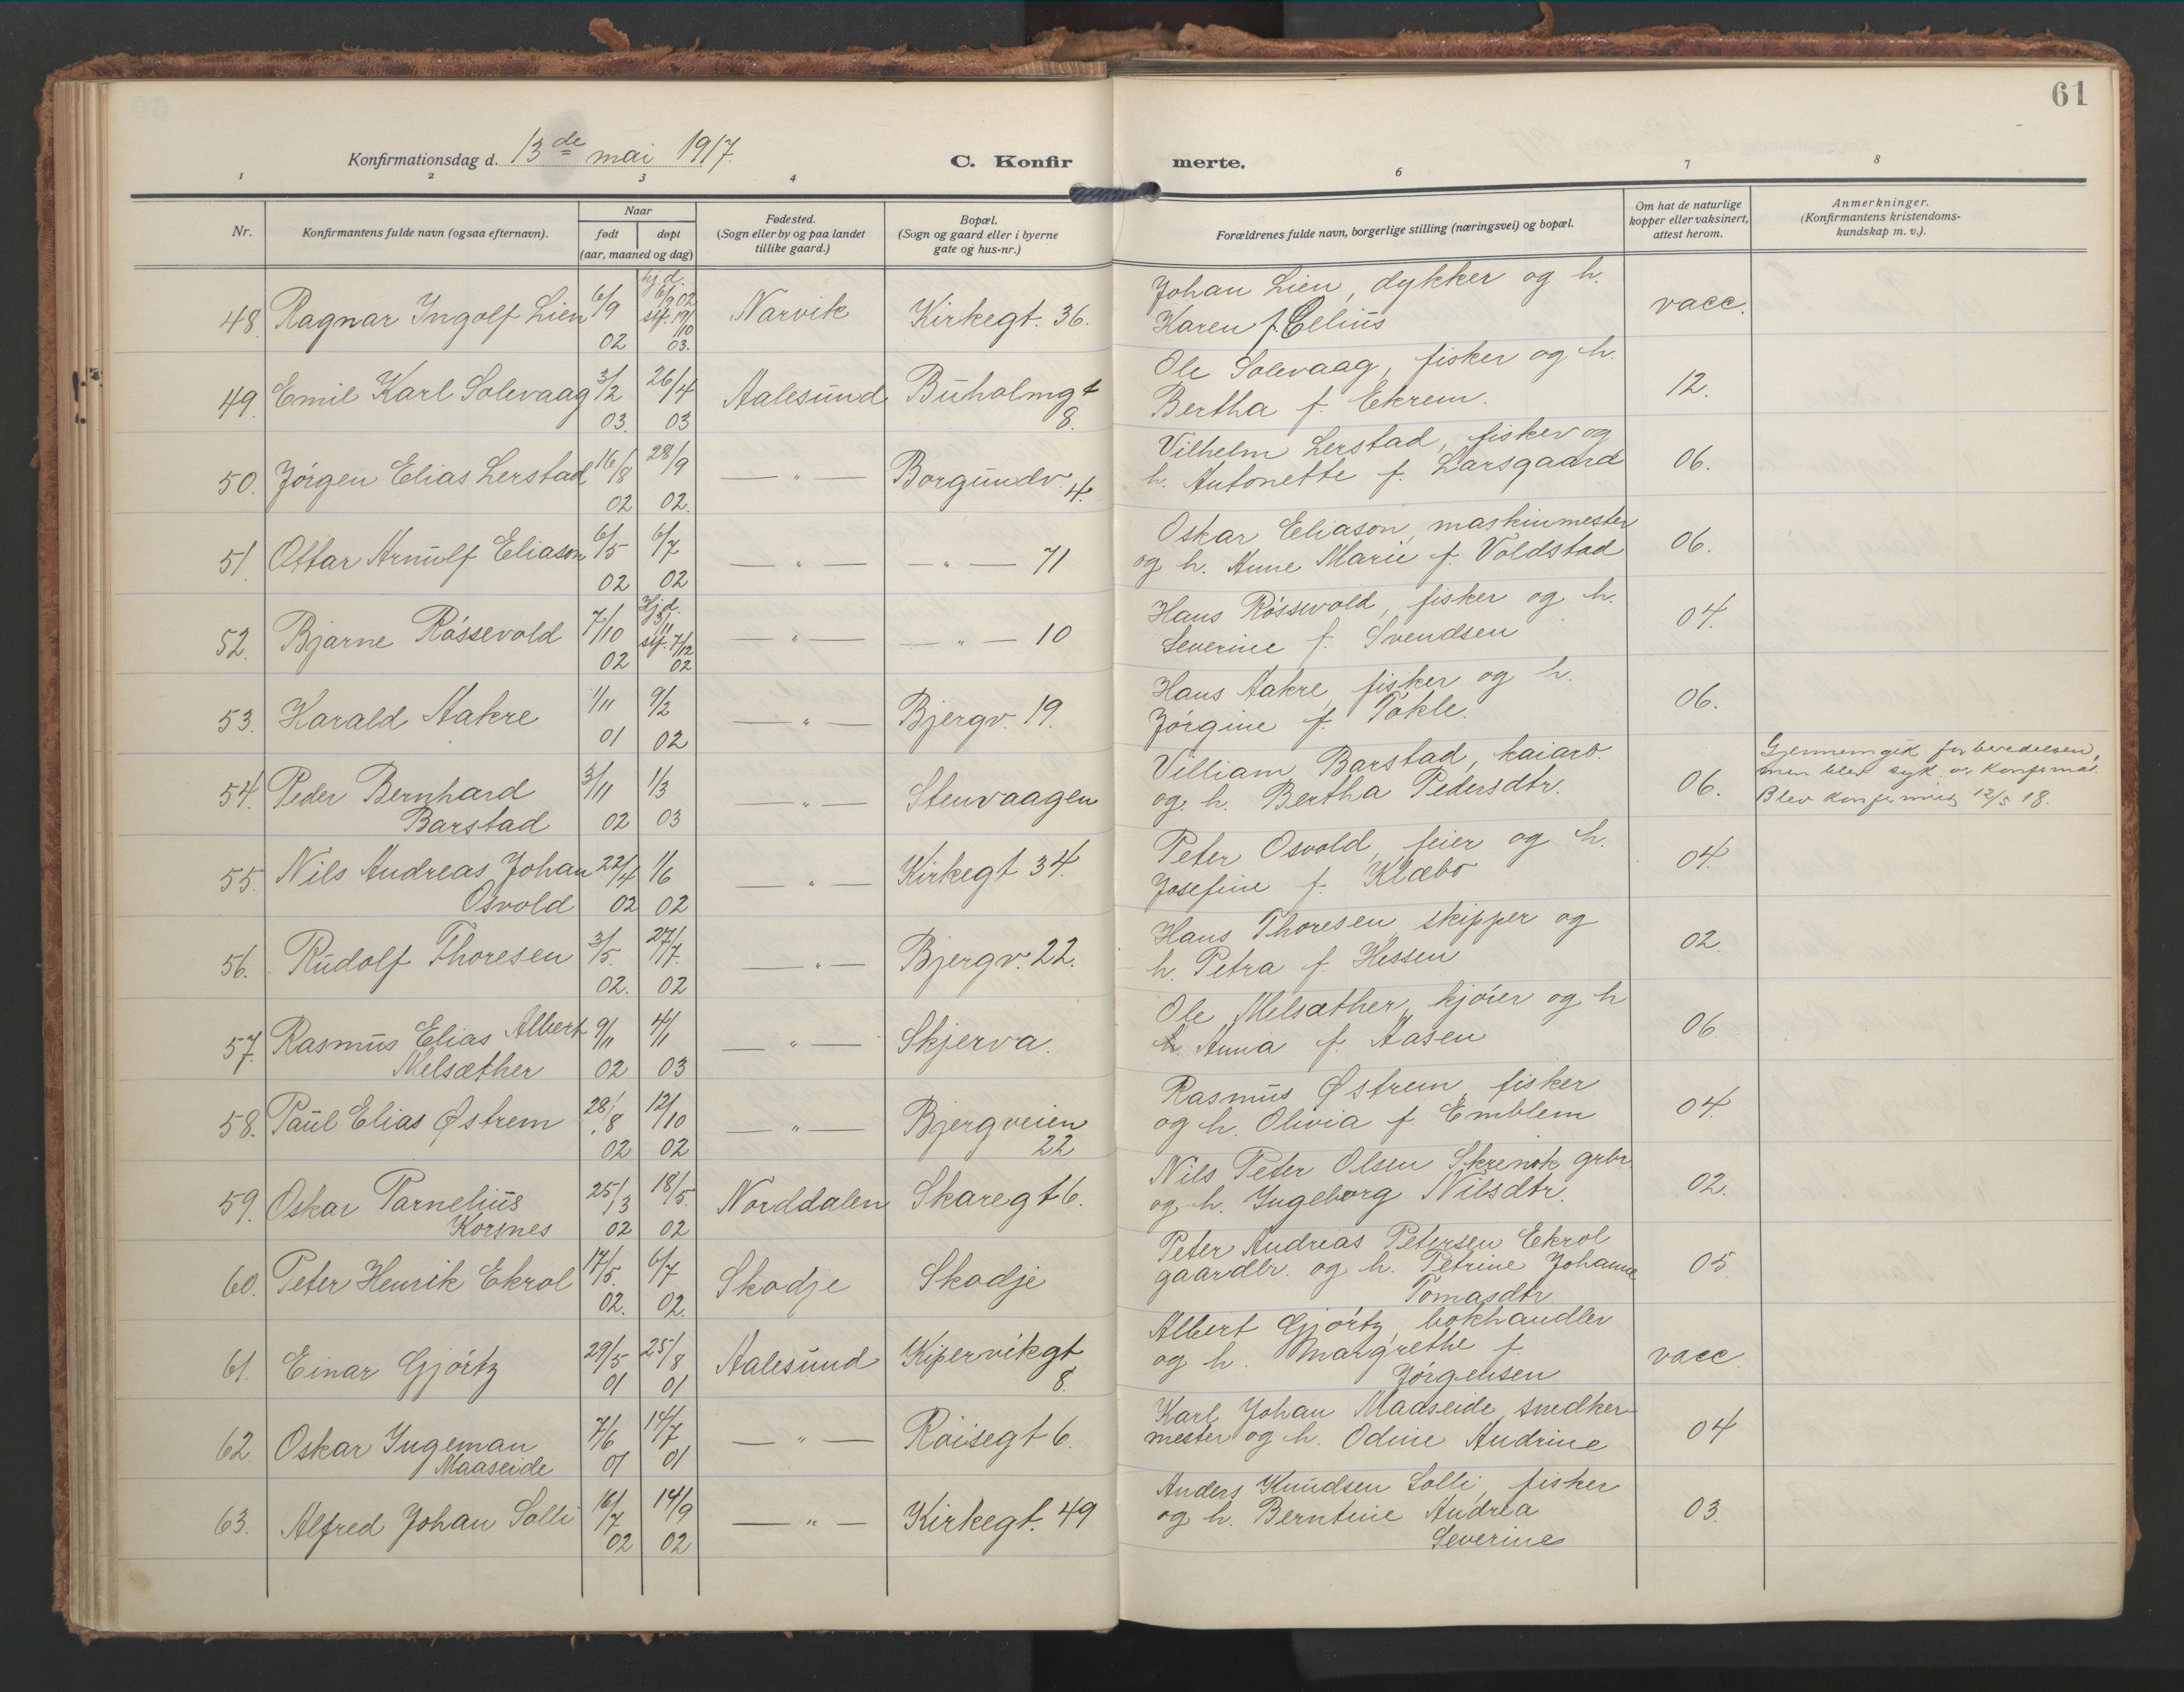 61
Konfirmationsdag d. 13de mai 1917.
C. Konfirmerte.
1 2 3 4 6 7 8
Nr.
Konfirmantens fulde navn (ogsaa efternavn).
Naar
født døpt
(aar, maaned og dag)
Fødested.
(Sogn eller by og paa landet
tillike gaard.)
Bopæl.
(Sogn og gaard eller i byerne
gate og hus-nr.)
Forældrenes fulde navn, borgerlige stilling (næringsvei) og bopæl.
Om hat de naturlige
kopper eller vaksinert,
attest herom.
Anmerkninger.
(Konfirmantens kristendoms-
kundskap m. v.).
48. Ragnar Ingolf Lien 6/9 02 hj.d. 6/9 02 stf. 19/10 03. Narvik Kirkegt. 36. Johan Lien, dykker og h.
Karen f. Celius vacc.
49. Emil Karl Solevaag 3/2 03. 26/4 03 Aalesund Buholmgt 8. Ole Solevaag, fisker og h.
Bertha f. Ekrem. 12.
50. Jörgen Elias Lerstad 16/8 02 28/9 02. — " — Borgundv. 4. Vilhelm Lerstad, fisker og
h. Antonette f. Larsgaard 06.
51. Ottar Arnulf Eliason 6/5 02 6/7 02 — " — — " — 71 Oskar Eliason, maskinmester
og h. Anne Marie f. Voldstad 06.
52. Bjarne Rössevold 7/10 02 Hj.d. 3/11 stf. 7/12 02 — " — — " — 10 Hans Rössevold, fisker og h.
Severine f. Svendsen 04.
53. Harald Aakre 1/11 01 9/2 02 — " — Bjergv. 19. Hans Aakre, fisker og h.
Jörgine f. Takle. 06.
54. Peder Bernhard
Barstad 3/11 02 1/3 03 — " — Stenvaagen Villiam Barstad, kaiarb.
og h. Bertha Pedersdtr. 06. Gjennemgik forberedelsen,
men blev syk v. konfirmat.
Blev konfirmert 12/5 18.
55. Nils Andreas Johan
Osvold 22/4 02 1/6 02 — " — Kirkegt 34. Peter Osvold, feier og h.
Josefine f. Klæbo 04.
56. Rudolf Thoresen 3/5. 02. 27/7. 02 — " — Bjergv. 22. Hans Thoresen skipper og
h. Petra f. Hessen 02.
57. Rasmus Elias Albert
Melsæther 9/11 02 4/1 03 — " — Skjerva. Ole Melsæther, kjöier og h
h. Anna f. Aasen 06
58. Paul Elias Østrem 28/8 02 12/10 02 — " — Bjergveien
22 Rasmus Østrem, fisker
og h. Olivia f. Emblem 04.
59. Oskar Parnelius
Korsnes 25/3 02 18/5. 02 Norddalen Skaregt 6. Nils Peter Olsen grbr.
og h. Ingeborg Nilsdtr. 02.
60. Peter Henrik Ekrol 17/5. 02. 6/7 02. Skodje Skodje Peter Andreas Petersen Ekrol
gaardbr. og h. Petrine Johanne
Tomasdtr 05.
61. Einar Gjörtz 29/5 01 25/8 01 Aalesund Kipervikgt
8. Albert Gjörtz, bokhandler
og h. Margrethe f.
Jörgensen vacc.
62. Oskar Ingeman
Maaseide 7/6 01 14/7 01 — " — Röisegt 6. Karl Johan Maaseide, snedker-
mester og h. Odine Andrine 04
63. Alfred Johan Solli 16/7 02 14/9 02 — " — Kirkegt. 49 Anders Knudsen Solli, fisker
og h. Berntine Andrea
Severine 03.